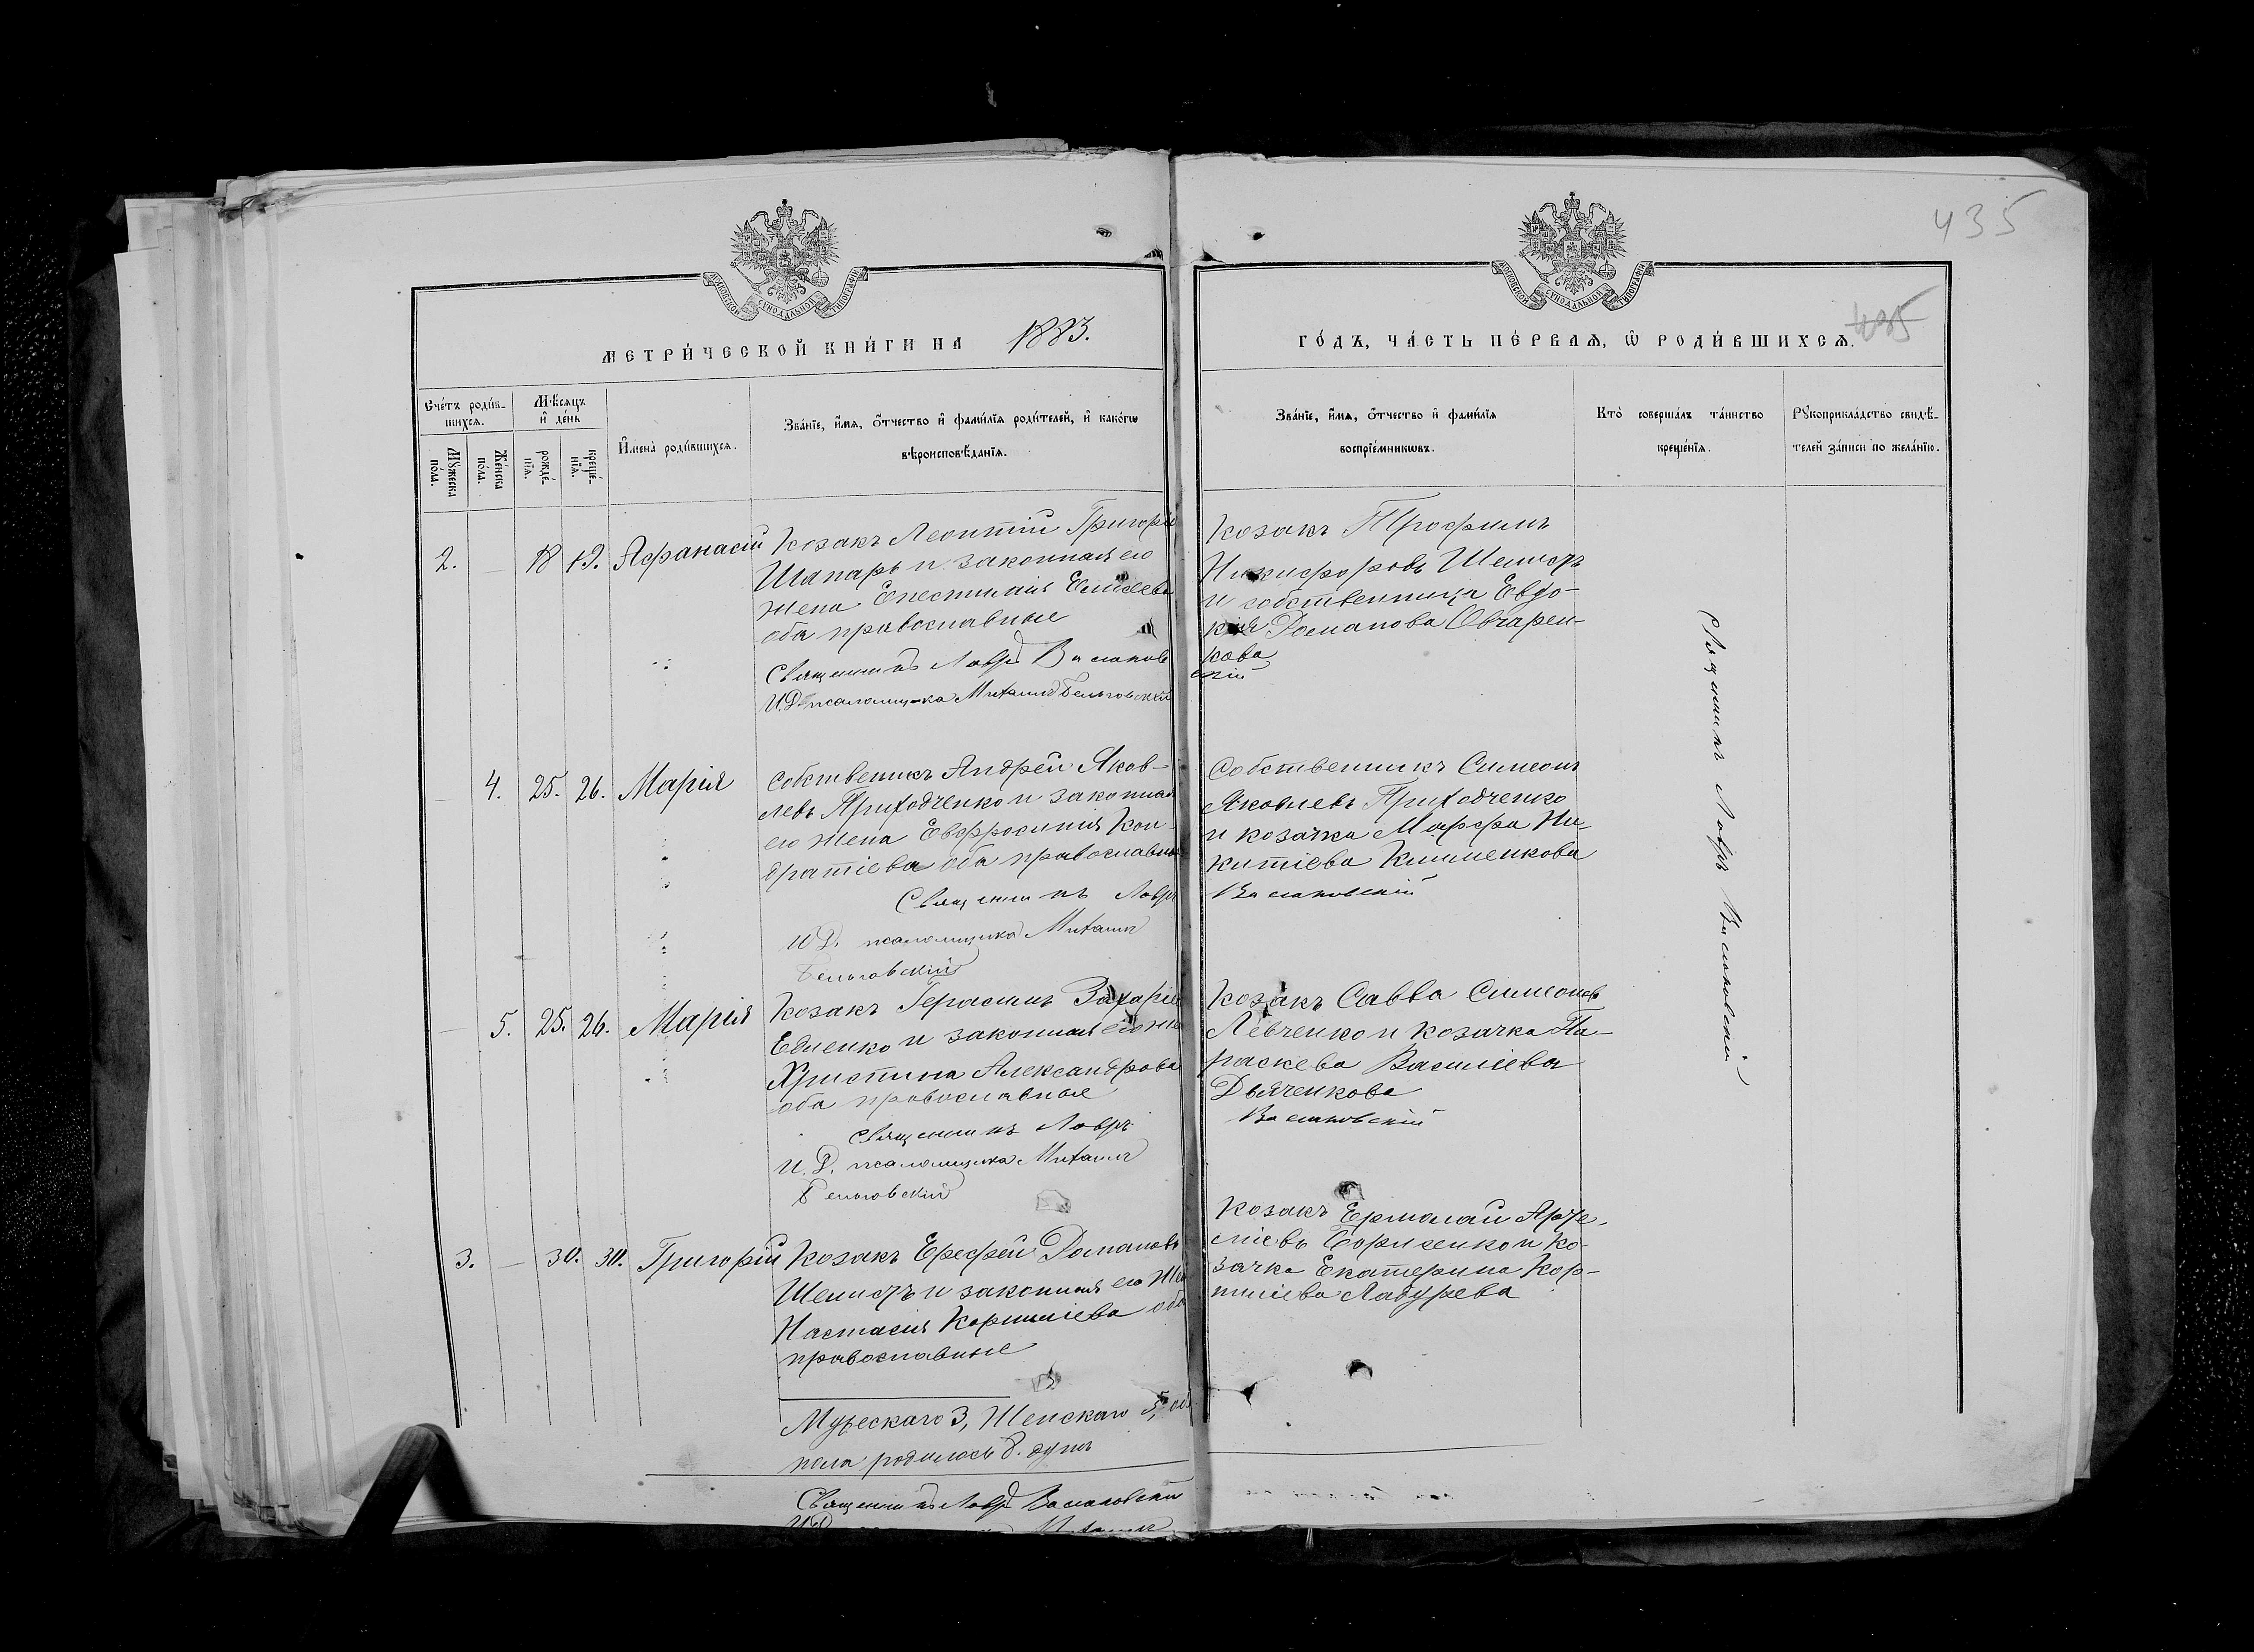 435
МОСКОВСКОЙ СУНОДАЛЬНОЙ ТИПОГРАФІИ
МОСКОВСКОЙ СУНОДАЛЬНОЙ ТИПОГРАФІИ
435
МЕТРИ́ЧЕСКОЙ КНИ́ГИ НА 1883.
ГО́ДЪ, ЧА́СТЬ ПЕ́РВАѦ, Ѽ РОДИ́ВШИХСѦ.
Сче́тъ роди́в-
шихсѧ.
Мꙋ́жеска по́ла.
Же́нска по́ла.
Мѣ́сѧцъ
и҆ де́нь
рожде́-
нїѧ.
креще́-
нїѧ.
И҆мена̀ роди́вшихсѧ.
Зва́нїе, и҆́мѧ, ѻ҆́тчество и҆ фами́лїѧ роди́телей, и҆ како́гѡ
вѣроисповѣ́данїѧ.
Зва́нїе, и҆́мѧ, ѻ҆́тчество и҆ фами́лїѧ
воспрїе́мникѡвъ.
Кто̀ соверша́лъ та́инство
креще́нїѧ.
Рꙋкоприкла́дство свидѣ́-
телей за́писи по жела́нїю.
2. — 18 19. Афанасій
Козакъ Леонтій Григорі
Шапарь и законная его
жена Епестимія Елисеева
оба православные
Священникъ Лавръ Василев
И.Д. псаломщика Михаилъ Бельговскій
Козакъ Трофимъ
Никифоровъ Шелистъ
и собственница Евдо-
кія Романова Овчарен-
кова
скій
— 4. 25. 26. Марія
Собственникъ Андрей Яков-
левъ Приходченко и законная
его жена Евфросинія Кон-
дратіева оба православные
Священникъ Лавръ
И.Д. псаломщика Михаилъ
Бельговскій
Собственникъ Симеонъ
Яковлевъ Приходченко
и козачка Марфа Ни-
китіева Клименкова
— 5. 25. 26. Марія
Козакъ Герасимъ Захаріе
законная его жена
Христина Александрова
оба православные
Священникъ Лавръ
И.Д. псаломщика Михаилъ
Бельговскій
Козакъ Савва Симеоновъ
Левченко и козачка Па-
раскева Василіева
Дьяченкова
3. — 30. 30. Григорій
Козакъ Ерефей Романовъ
Шелистъ и законная его же
Настасія Корниліева оба
православные
Козакъ Ермолай Арте-
міевъ Борисенко и ко-
зачка Екатерина Кор-
ниліева
Мужескаго 3, Женскаго 5, обо
пола родилось 8. душъ
Священникъ Лавръ
Священникъ Лавръ